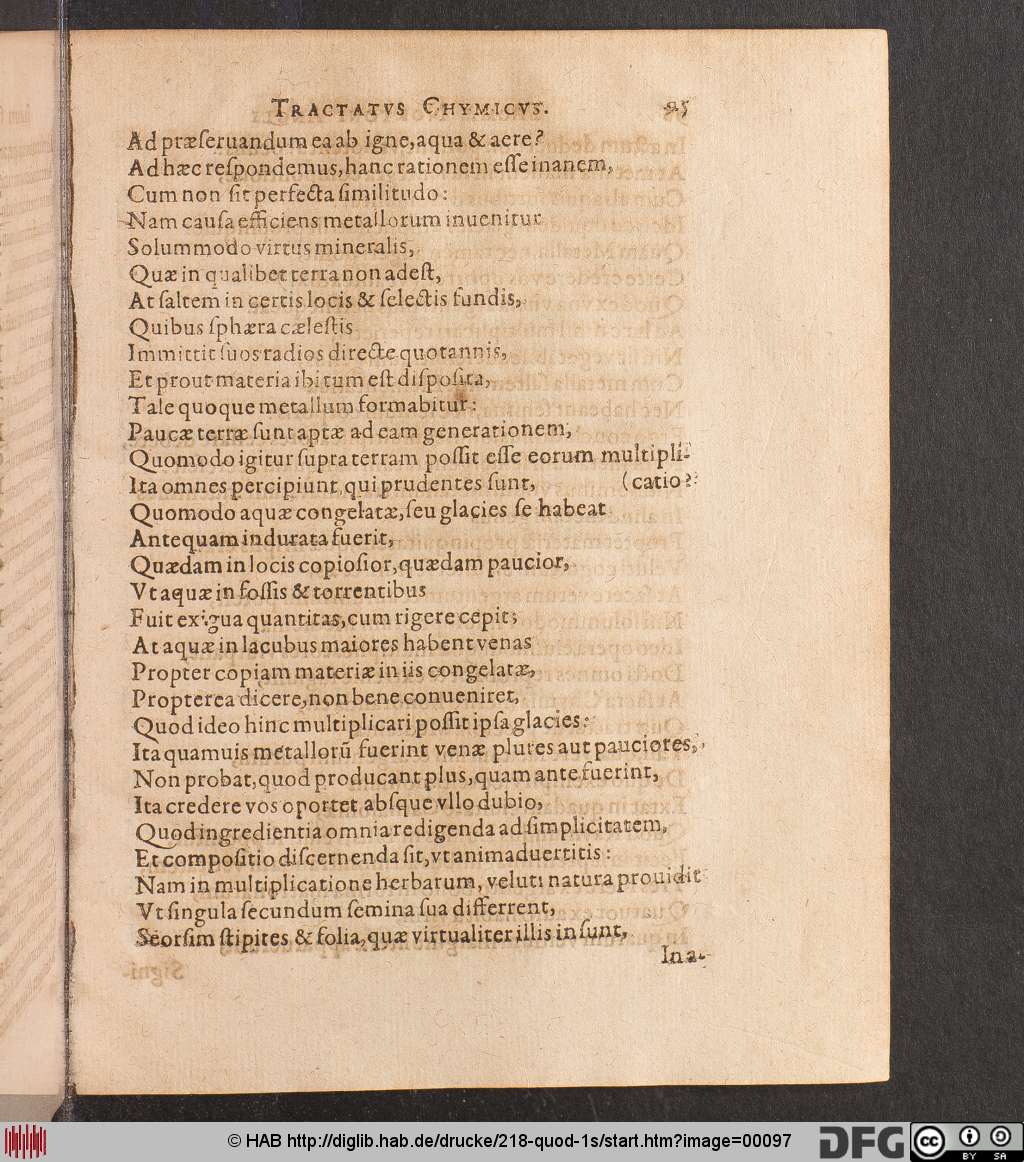 TRACTATVS CHYMICVS. 95
Ad præſeruandum ea ab igne, aqua & aere?
Ad hæc reſpondemus, hanc rationem eſſe inanem,
Cum non ſit perfecta ſimilitudo:
Nam cauſa efficiens metallorum inuenitur
Solummodo virtus mineralis,
Quæ in qualibet terra non adeſt,
At ſaltem in certis locis & ſelectis fundis,
Quibus ſphæra cæleſtis
Immittit ſuos radios directe quotannis,
Et prout materia ibi tum eſt diſpoſita,
Tale quoque metallum formabitur:
Paucæ terræ ſunt aptæ ad eam generationem,
Quomodo igitur ſupra terram poſſit eſſe eorum multipli-
Ita omnes percipiunt, qui prudentes ſunt, (catio?
Quomodo aquæ congelatæ, ſeu glacies ſe habeat
Antequam indurata fuerit,
Quædam in locis copioſior, quædam paucior,
Vt aquæ in foſſis & torrentibus
Fuit exigua quantitas, cum rigere cepit;
At aquæ in lacubus maiores habent venas
Propter copiam materiæ in iis congelatæ,
Propterea dicere, non bene conueniret,
Quod ideo hinc multiplicari poſſit ipſa glacies:
Ita quamuis metallorũ fuerint venæ plures aut pauciores,
Non probat, quod producant plus, quam ante fuerint,
Ita credere vos oportet abſque vllo dubio,
Quod ingredientia omnia redigenda ad ſimplicitatem,
Et compoſitio diſcernenda ſit, vt animaduertitis:
Nam in multiplicatione herbarum, veluti natura prouidit
Vt ſingula ſecundum ſemina ſua differrent,
Seorſim ſtipites & folia, quæ virtualiter illis inſunt,
In a-
© HAB http://diglib.hab.de/drucke/218-quod-1s/start.htm?image=00097
DFG cc BY SA